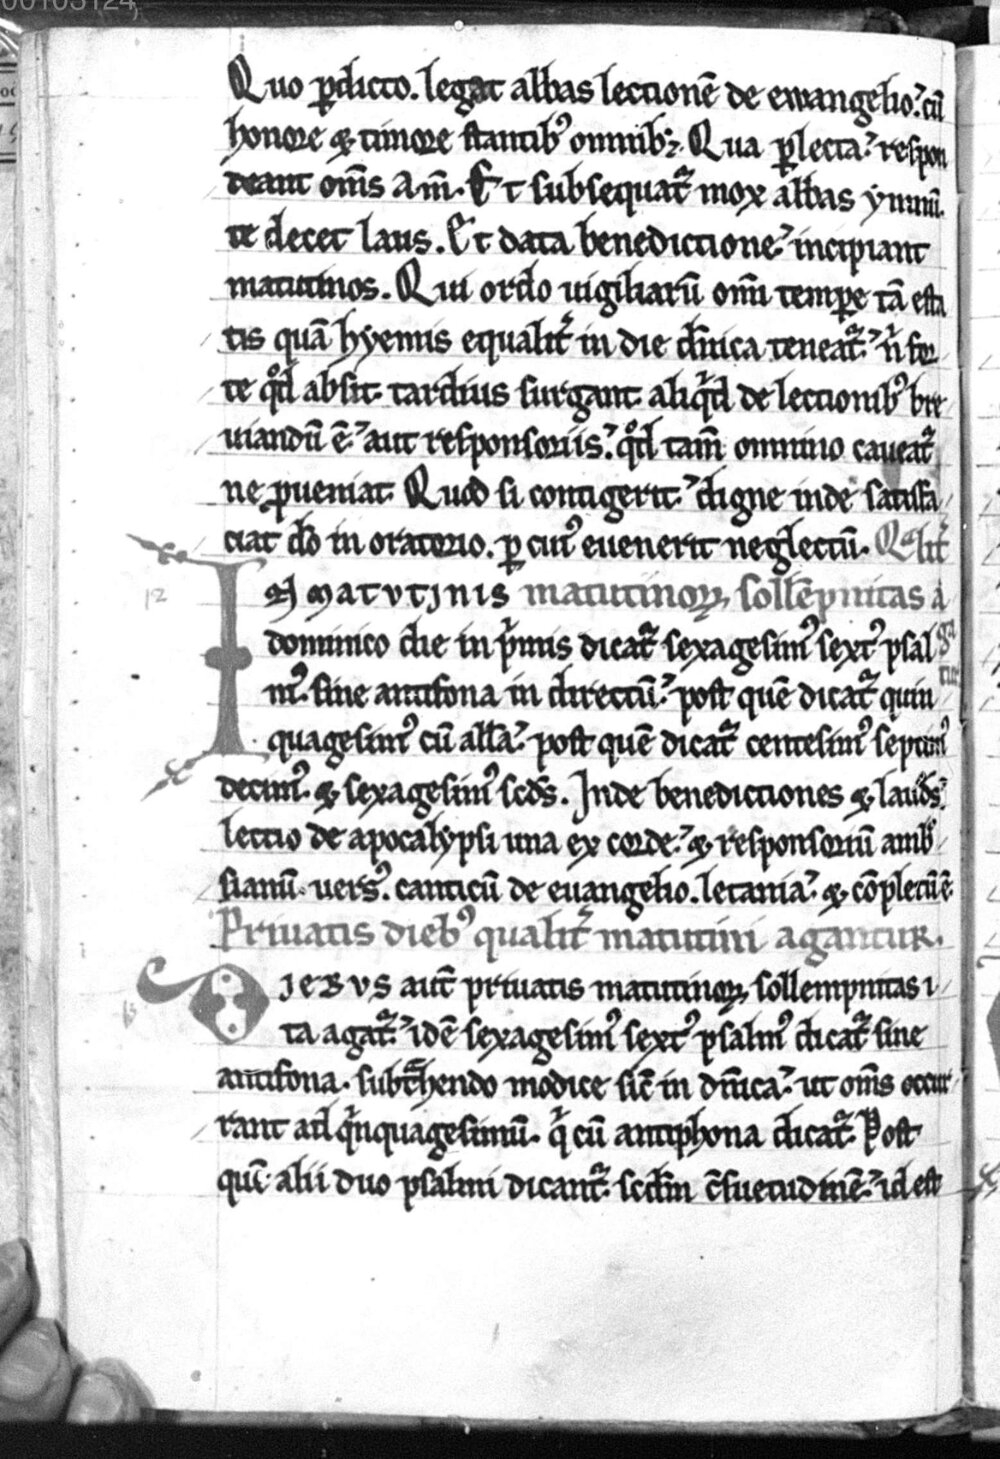 00103124
Quo ꝑdicto. legat abbas lectionē de ewangelio. cū
honore ⁊ timore stantibꝰ omnibꝫ. Qua ꝑlecta. respon
deant om̄s am̄. Et subsequat᷑ mox abbas ymnū.
te decet laus. Et data benedictione. incipiant
matutinos. Qui ordo uigiliarū om̄i tempore tā esta
tis quā hyemis equalit᷑ in die dn̄ica teneat᷑. n̄ for
te qd̄ absit tardius surgant. aliqͥd de lectionibꝰ bre
uiandū ē. aut responsoriis. qd̄ tam̄ omnino caueat᷑
ne ꝓueniat. Quod si contigerit. digne inde satisfa
ciat dō in oratorio. ꝑ cuiꝰ euenerit neglectū. Qualit᷑
12
IN MATUTINIS matutinoꝝ sollēpnitas a
ga
dominico die in pͥmis dicat᷑ sexagesimꝰ sextꝰ psal
tur
mꝰ. sine antifona in directū. post quē dicat᷑ quin
quagesimꝰ cū all̄a. post quē dicat᷑ centesimꝰ septimꝰ
decimꝰ. ⁊ sexagesimꝰ scd̄s. Inde benedictiones ⁊ laud̄s.
lectio de apocalypsi una ex corde. ⁊ responsoriū amb̄
sianū. uersꝰ. canticū de euangelio. letania. ⁊ cōpletū ē.
Priuatis diebꝰ qualit᷑ matutini agantur.
DIEBUS aut̄ priuatis matutinoꝝ sollempnitas i
ta agat᷑. idē sexagesimꝰ sextꝰ psalmꝰ dicat᷑ sine
antifona. subt̄hendo modice sic̄ in dn̄ica. ut om̄s occur
rant ad qͥnquagesimū. qͥ cū antiphona dicat᷑. Post
quē alii duo psalmi dicant᷑. scd̄m c̄suetudinē. id est